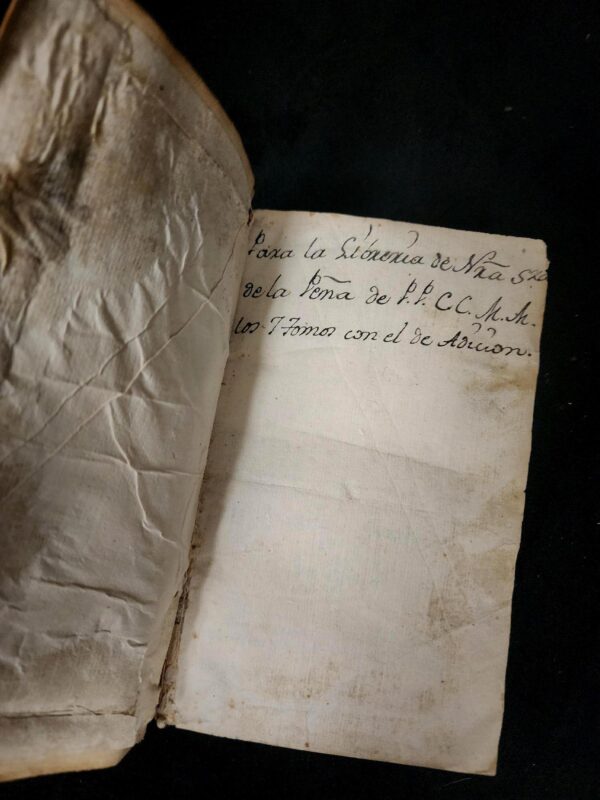 Para la Libreria de Nra Sra
de la Peña de P.P. C C. M. M.
los 7 Tomos con el de Adicion.